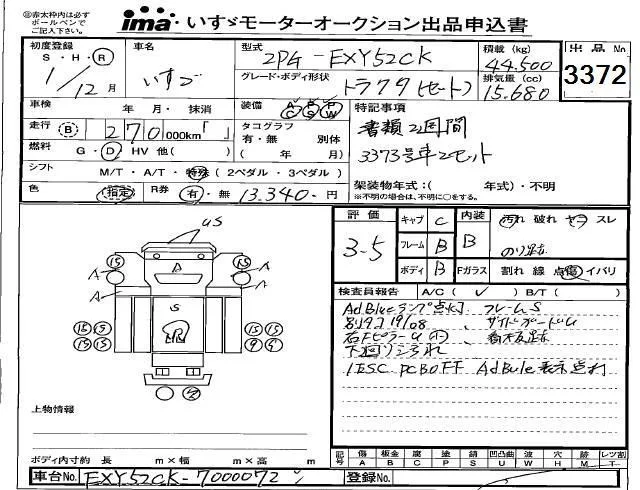 ㊟赤太枠内は必ず
ボールペンで
ご記入下さい。
ima いすゞモーターオークション出品申込書
初度登録 車名 型式 2PG-EXY52CK 積載 (kg) 44,500 出品No
S・H・R 1/12月 いすゞ グレード・ボディ形状 トラクタ(セット) 排気量 (cc) 15,680 3372
車検 年 月・抹消 装備 AC PS PW 特記事項
走行 B 270 000km「 」 タコグラフ 有・無 別体 書類2週間
燃料 G・D・HV 他( ) ( 年 月) 3373号車とセット
シフト M/T・A/T・特殊 (2ペダル・3ペダル)
架装物年式:( 年式)・不明
色 (指定) R券 有・無 13,340-円 ※不明の場合は、不明に○をする。
評価 キャブ C 内装 汚れ 破れ ヤニ スレ
3-5 フレーム B B のり跡
ボディ B Fガラス 割れ 線 点 傷 イバリ
検査員報告 A/C( ✓ ) B/T( )
AdBlueランプ点灯 フレームS
サイドガードU
下回りシミ
1ESC PCBOFF AdBule表示点灯
US
A
S
上物情報
ボディ内寸約 長 m×幅 m×高 m
記号 傷 A 板金 B 腐 C 塗 P 錆 S 凹凸曲 U 波 W 穴 H 跡 M レツ割 T
車台No. EXY52CK-7000072 登録No.